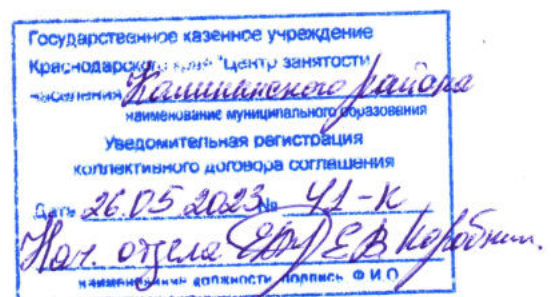 Государственное казенное учреждение
Краснодарского края "Центр занятости
населения Калининского района
наименование муниципального образования
Уведомительная регистрация
коллективного договора соглашения
Дата 26.05.2023 № 41-К
Нач. отдела Е В
наименование должности подпись Ф.И.О